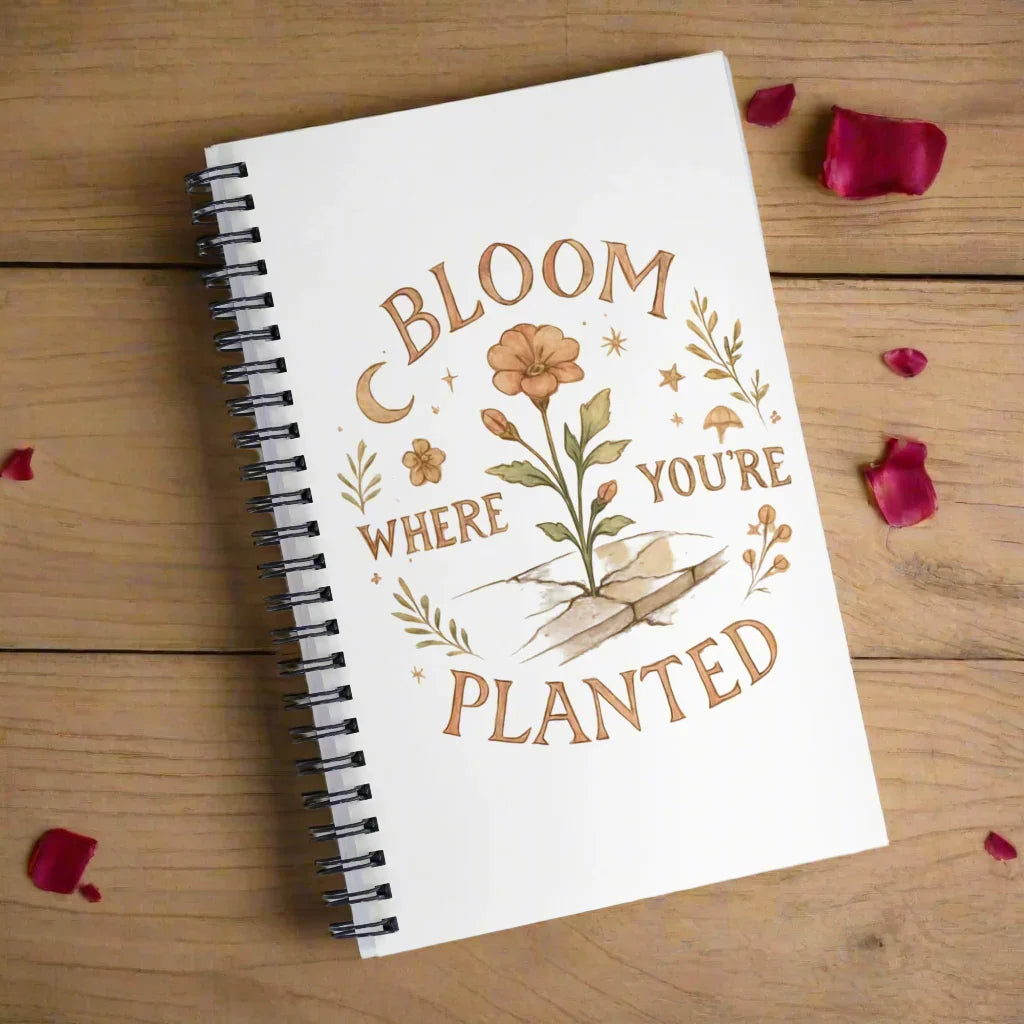 BLOOM
WHERE YOU'RE
PLANTED